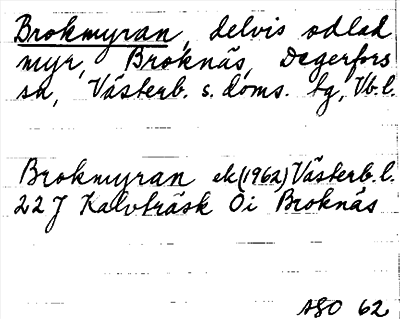 Brokmyran, delvis odlad
myr, Broknäs, Degerfors
sn, Västerb. s. doms. tg, Vb.l.
Brokmyran ek (1962) Västerb. l.
22 J Kalvträsk Öi Broknäs
ASO 62